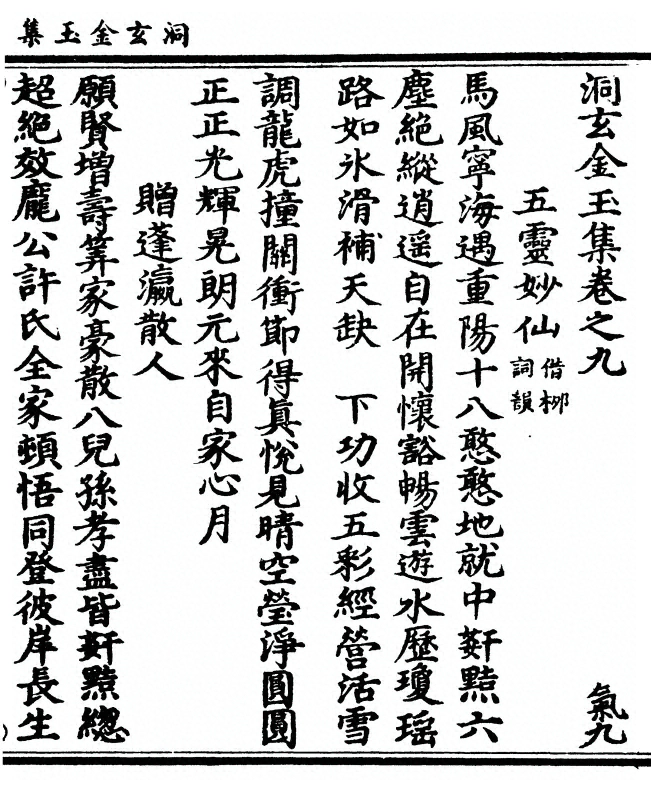 洞玄金玉集
洞玄金玉集卷之九 氣九
五靈妙仙 借栁詞韻
馬風寧海遇重陽十八憨憨地就中䜘㸃六
塵絶縱逍遥自在開懷豁暢雲遊水歷瓊瑶
路如氷滑補天缺 下功收五彩經營活雪
調龍虎撞關衝節得眞恱見晴空瑩淨圓圓
正正光輝晃朗元來自家心月
贈蓬瀛散人
願賢增壽筭家豪散八兒孫孝盡皆㸃緫
超絶效龐公許氏全家頓悟同登彼岸長生